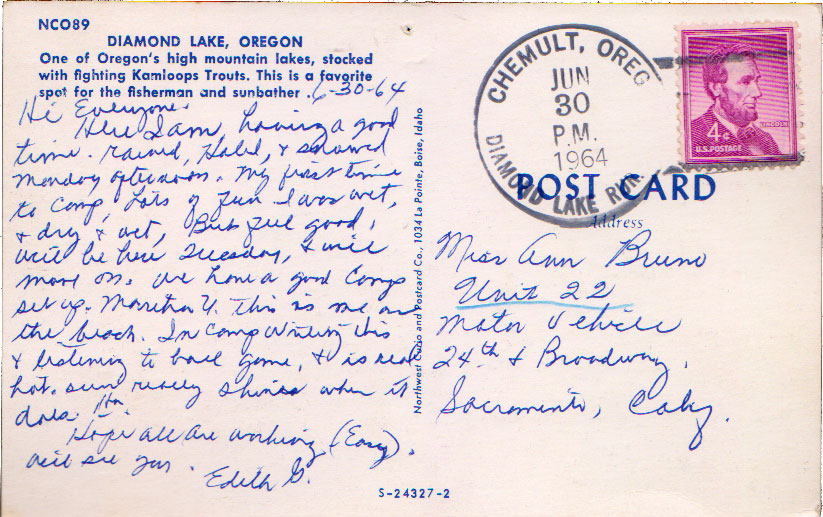 NCO89
DIAMOND LAKE, OREGON
One of Oregon's high mountain lakes, stocked
with fighting Kamloops Trouts. This is a favorite
spot for the fisherman and sunbather. 6-30-64
Hi Everyone.
Here I am, having a good
time. rained, Haled, & snowed
monday afternoon. My first time
to camp, Lots of fun I was wet,
& dry & wet, But feel good,
will be here Tuesday, & will
move on. we have a good Camp
set up. Martha Y. this is me on
the beach. In camp writing this
& listening to ball game, & is real
hot. sun really shines when it
does.
Hope all are working (Easy).
will see you.
Edith G.
Northwest Curio and Postcard Co., 1034 La Pointe, Boise, Idaho
S-24327-2
CHEMULT, OREG
JUN
30
P.M.
1964
DIAMOND LAKE RUR.
LINCOLN
4¢
U.S. POSTAGE
POST CARD
Address
Miss Ann Bruno
Unit 22
Motor Vehicle
24th & Broadway,
Sacramento, Calif.